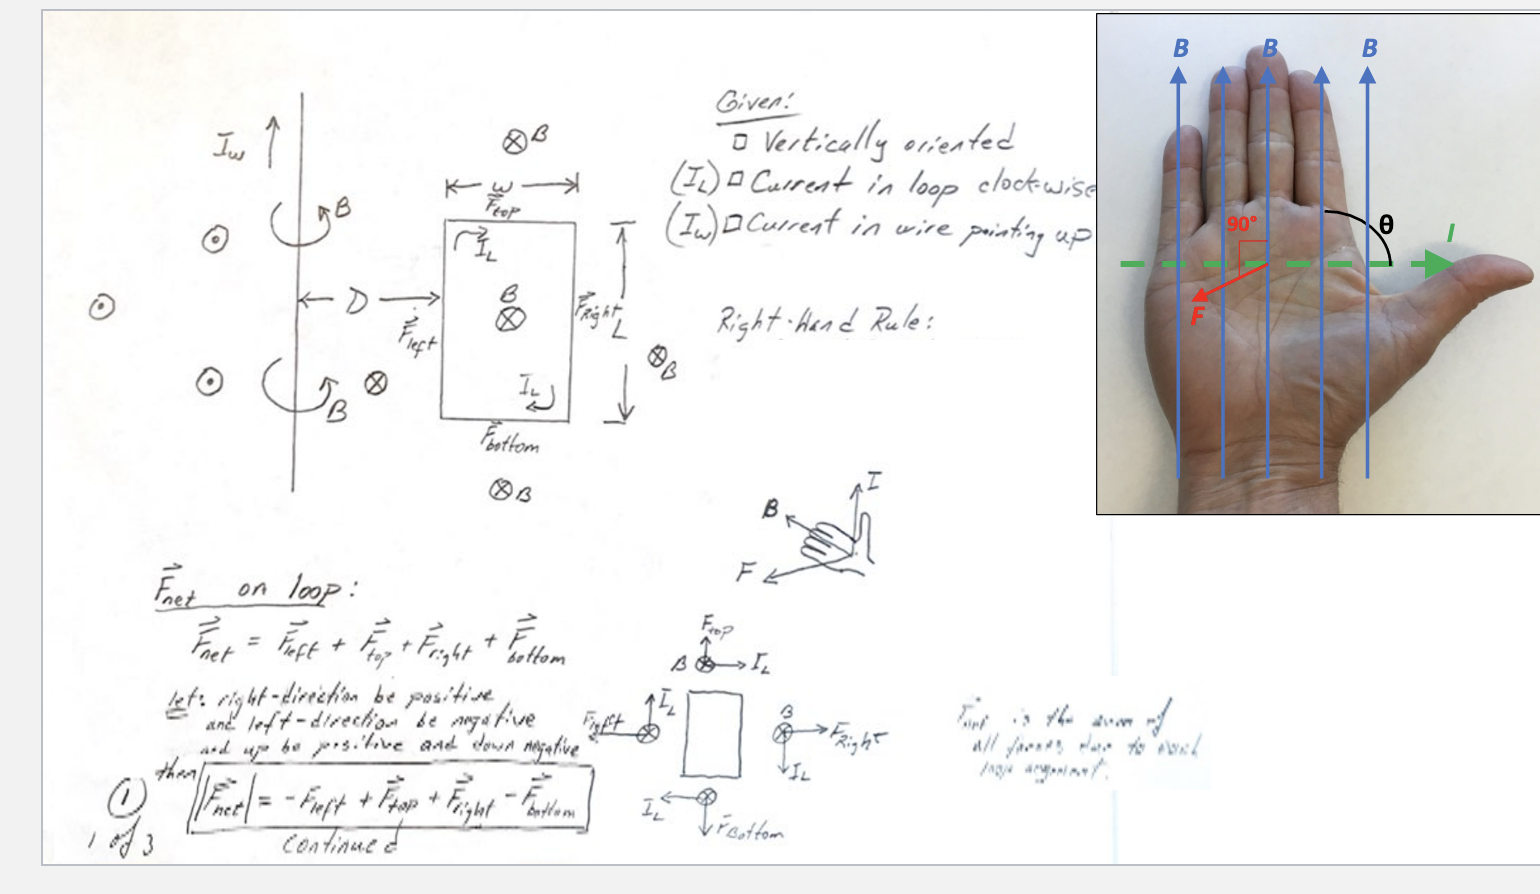 Given:
□ Vertically oriented
(I_L) □ Current in loop clock-wise
(I_w) □ Current in wire pointing up
Right-Hand Rule:
I_w
B
B
D
⊗ B
w
F_top
I_L
B
⊗
F_left
F_Right
L
I_L
F_bottom
⊗ B
⊗ B
B
B
B
90°
θ
I
F
I
B
F
F_net on loop:
F_net = F_left + F_top + F_right + F_bottom
let: right-direction be positive
and left-direction be negative
and up be positive and down negative
then
|F_net| = -F_left + F_top + F_right - F_bottom
continued
①
1 of 3
F_top
B
I_L
F_left
I_L
B
F_Right
I_L
I_L
F_Bottom
F_net is the sum of
all forces due to each
loop segment.